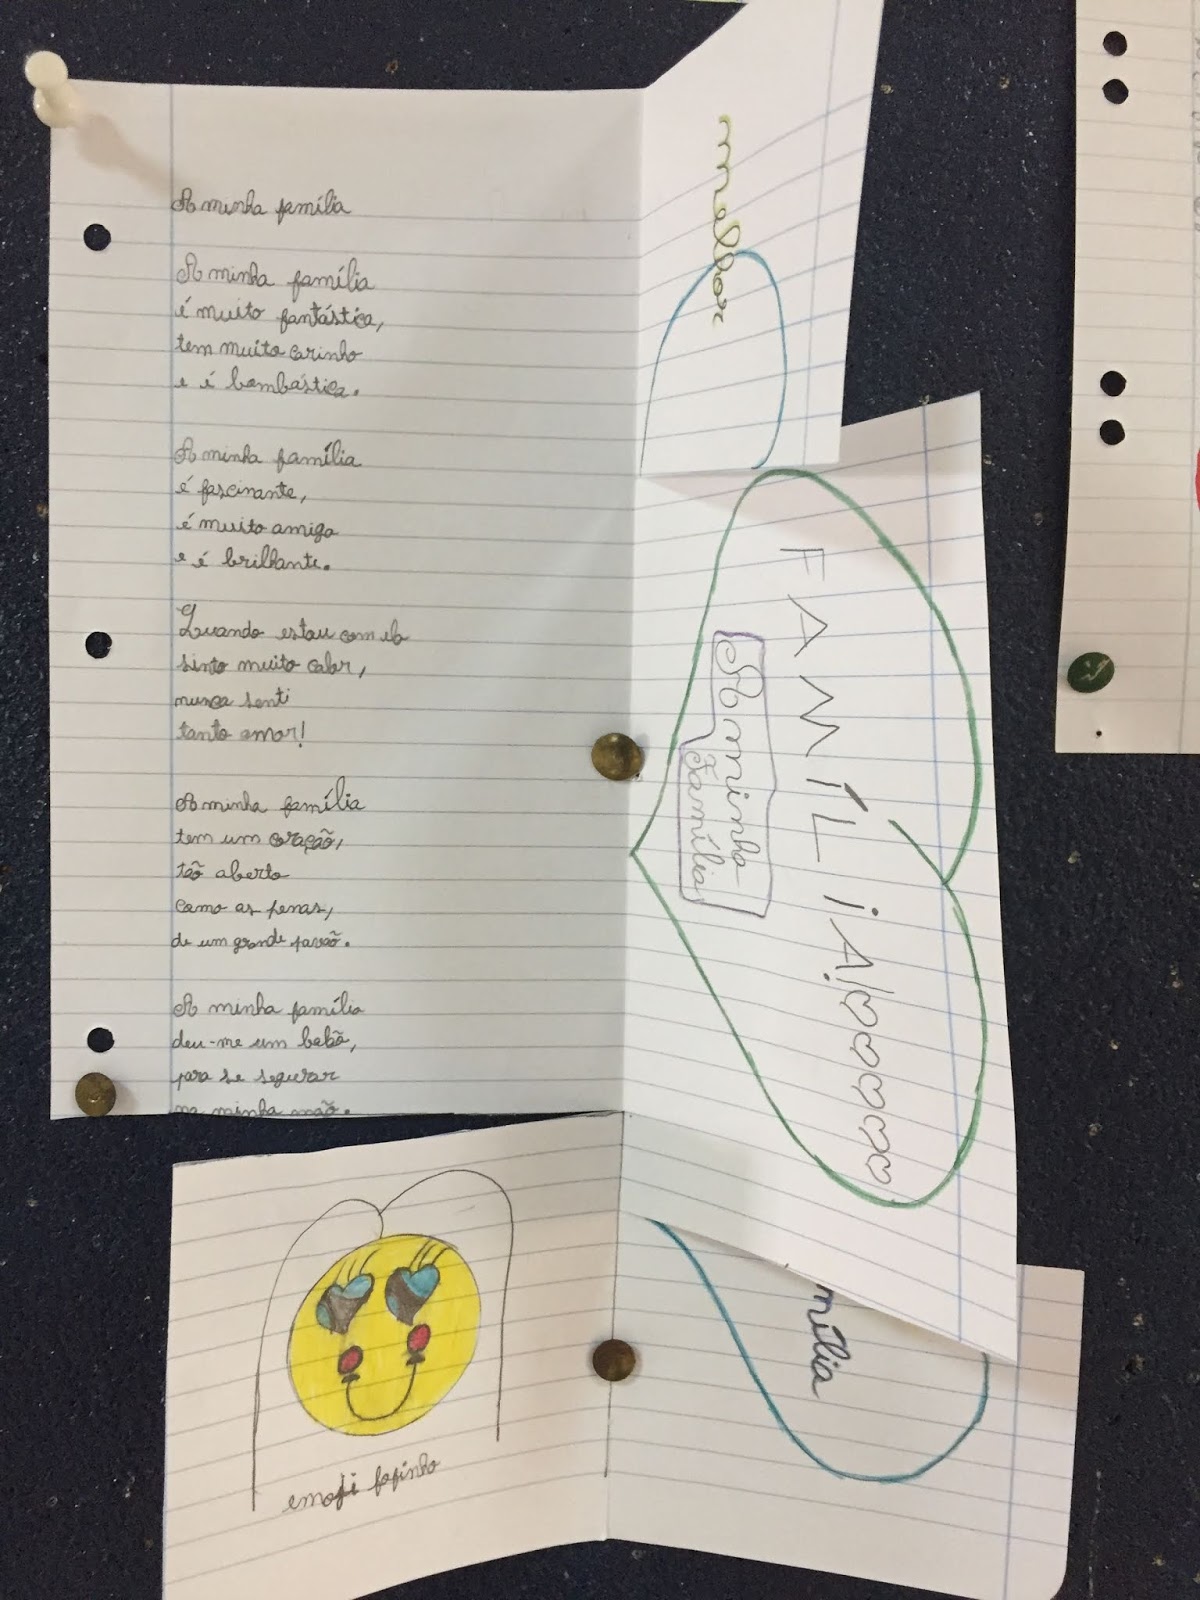 A minha família
A minha família
é muito fantástica,
tem muito carinho
e é bombástica.
A minha família
é fascinante,
é muito amiga
e é brilhante.
Quando estou com ela
sinto muito calor,
nunca senti
tanto amor!
A minha família
tem um coração,
tão aberto
como as penas,
de um grande pavão.
A minha família
deu-me um babão,
para se segurar
na minha mão.
melhor
FAMÍLiA
A minha
família
mília
emoji fofinho